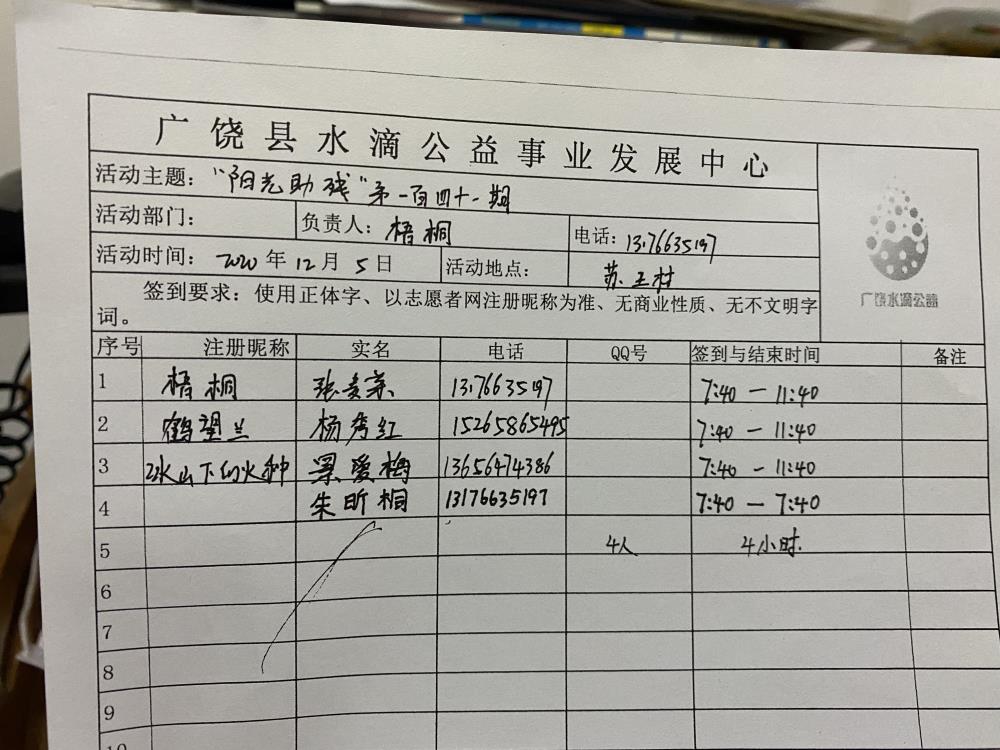 广饶县水滴公益事业发展中心
活动主题："阳光助残"第一百四十一期
活动部门： 负责人：梧桐 电话：13176635197
活动时间：2020年12月5日 活动地点：苏王村
签到要求：使用正体字、以志愿者网注册昵称为准、无商业性质、无不文明字
词。
广饶水滴公益
序号 注册昵称 实名 电话 QQ号 签到与结束时间 备注
1 梧桐 张 13176635197 7:40 — 11:40
2 鹤望兰 杨秀红 15265865495 7:40 — 11:40
3 冰山下的火种 梁爱梅 13656474386 7:40 — 11:40
4 朱昕桐 13176635197 7:40 — 7:40
5 4人 4小时
6
7
8
9
10